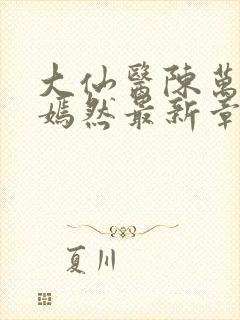 大仙醫陳萬
嫣然最新章
夏川